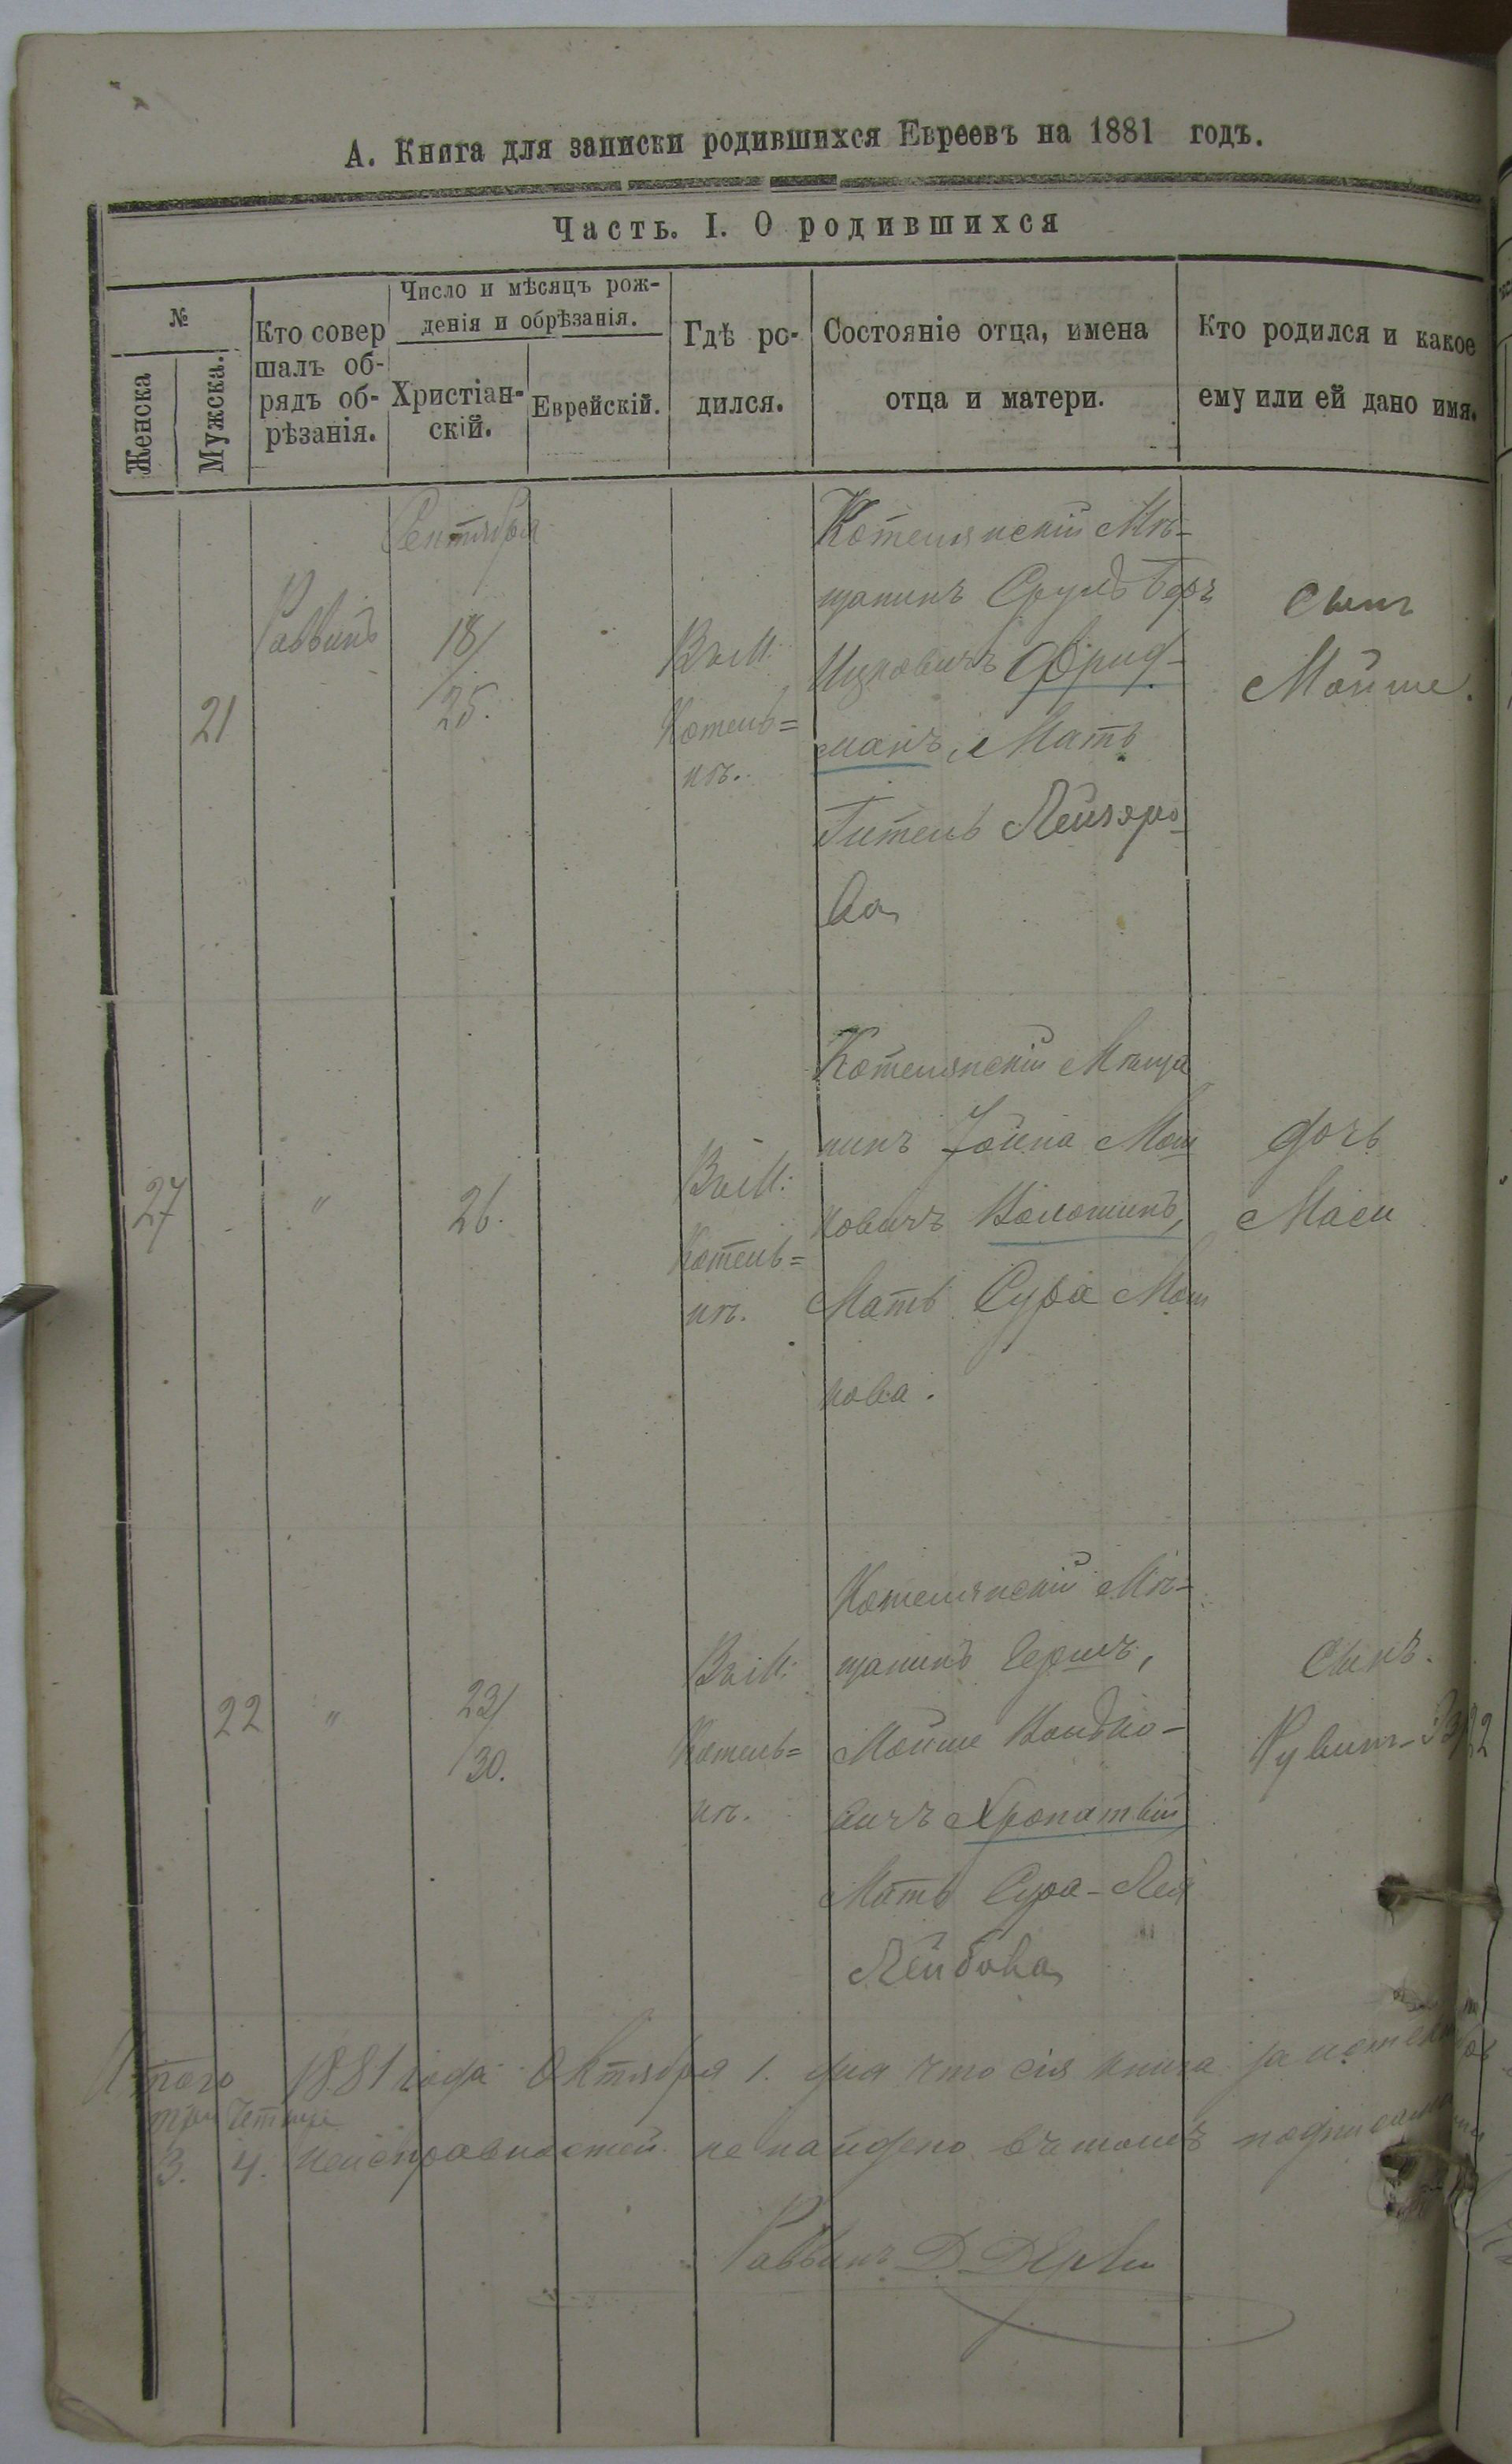 А. Книга для записки родившихся Евреевъ на 1881 годъ.
Часть. I. О родившихся
№
Женска
Мужска.
Кто совер
шалъ об-
рядъ об-
рѣзанія.
Число и мѣсяцъ рож-
денія и обрѣзанія.
Христіан-
скій.
Еврейскій.
Гдѣ ро-
дился.
Состояніе отца, имена
отца и матери.
Кто родился и какое
ему или ей дано имя.
21
Раввинъ
Сентября
18/
25.
Въ М.
Котель=
нѣ.
Котелянскій Мѣ-
щанинъ Сруль Беръ
Ицковичъ Фрид-
манъ, Мать
Гитель Лейзеро-
ва
сынъ
Мойше.
27
"
26.
Въ М:
Котель=
нѣ.
Котелянскій Мѣща
нинъ Іойна Мош
ковичъ Волошинъ,
Мать Сура Мош
кова.
дочь
Маси
22
"
23/
30.
Въ М:
Котель=
нѣ.
Котелянскій Мѣ-
щанинъ Гершъ,
Мойше Волько-
вичъ
Мать Сура-Лея
Лейбова
Сынъ.
Рувинъ-
22
Итого 1881 года Октября 1. дня что сія книга за
три четыре
3. 4. неисправностей не найдено въ томъ
Раввинъ Д.